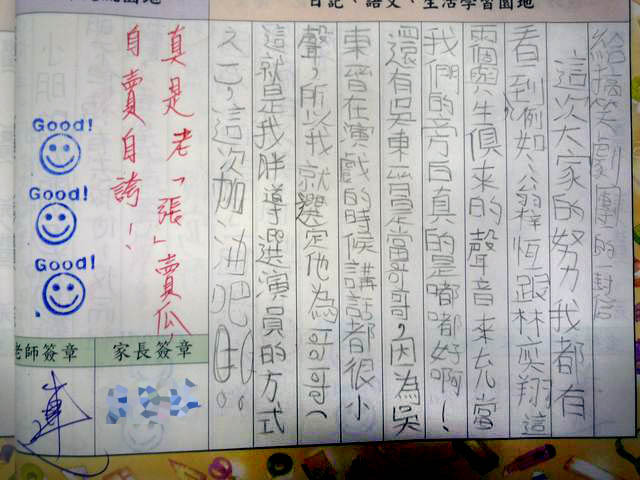 日記、語文、生活學習園地
給搞笑劇團的一封信
這次大家的努力我都有
看到,例如:翁梓恒跟林奕翔這
兩個與生俱來的聲音來充當
我們的旁白真的是嘟嘟好啊!
還有吳東晉是當哥哥,因為吳
東晉在演戲的時候講話都很小
聲,所以我就選定他為哥哥(
這就是我胖導選演員的方式
之一),這次加油吧!!
真是老「張」賣瓜,
自賣自誇!
Good!
Good!
Good!
老師簽章
家長簽章